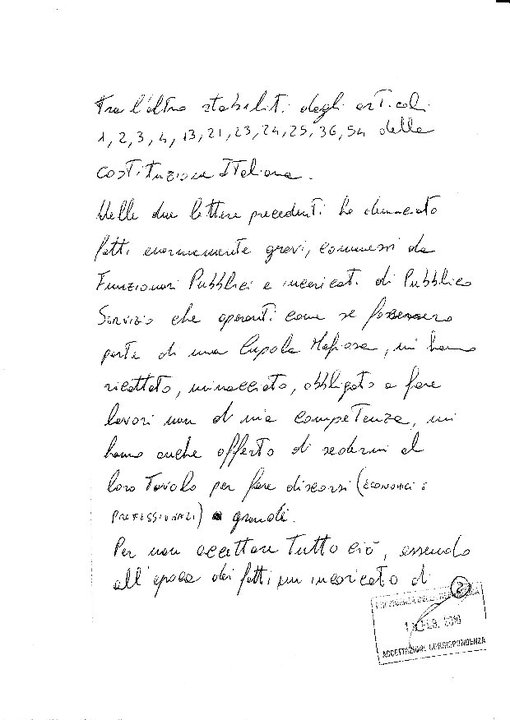 Tra l'altro stabiliti dagli articoli
1, 2, 3, 4, 13, 21, 23, 24, 25, 36, 54 della
Costituzione Italiana.
Nelle due lettere precedenti ho denunciato
fatti enormemente gravi, commessi da
Funzionari Pubblici e incaricati di Pubblico
Servizio che operanti come se fossero
parte di una Cupola Mafiosa, mi hanno
ricattato, minacciato, obbligato a fare
lavori non di mia competenza, mi
hanno anche offerto di sedermi al
loro Tavolo per fare discorsi (ECONOMICI E
PROFESSIONALI) grandi.
Per non accettare Tutto ciò, essendo
all'epoca dei fatti un incaricato di
2
FEB. 2010
ACCETTAZIONE CORRISPONDENZA